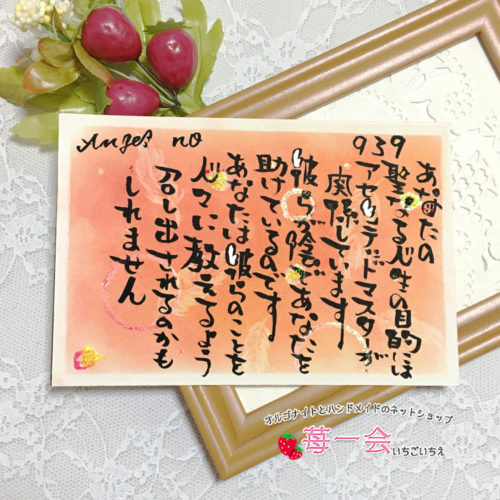 Angel no
939
あなたの
聖なる人生の目的には
アセンデッドマスターが
関係しています
彼らが陰であなたを
助けているのです
あなたは彼らのことを
人々に教えるよう
召し出されるのかも
しれません
オルゴナイトとハンドメイドのネットショップ
苺一会 いちごいちえ